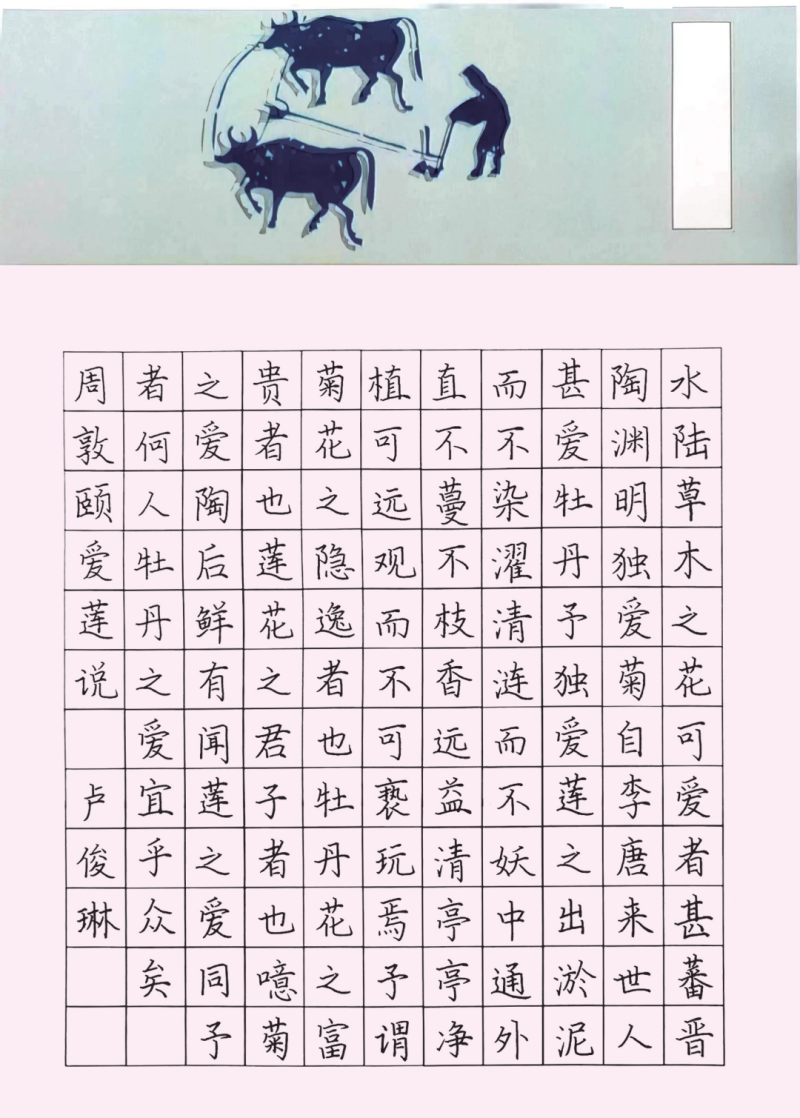 水陆草木之花可爱者甚蕃晋
陶渊明独爱菊自李唐来世人
甚爱牡丹予独爱莲之出淤泥
而不染濯清涟而不妖中通外
直不蔓不枝香远益清亭亭净
植可远观而不可亵玩焉予谓
菊花之隐逸者也牡丹花之富
贵者也莲花之君子者也噫菊
之爱陶后鲜有闻莲之爱同予
者何人牡丹之爱宜乎众矣
周敦颐爱莲说 卢俊琳